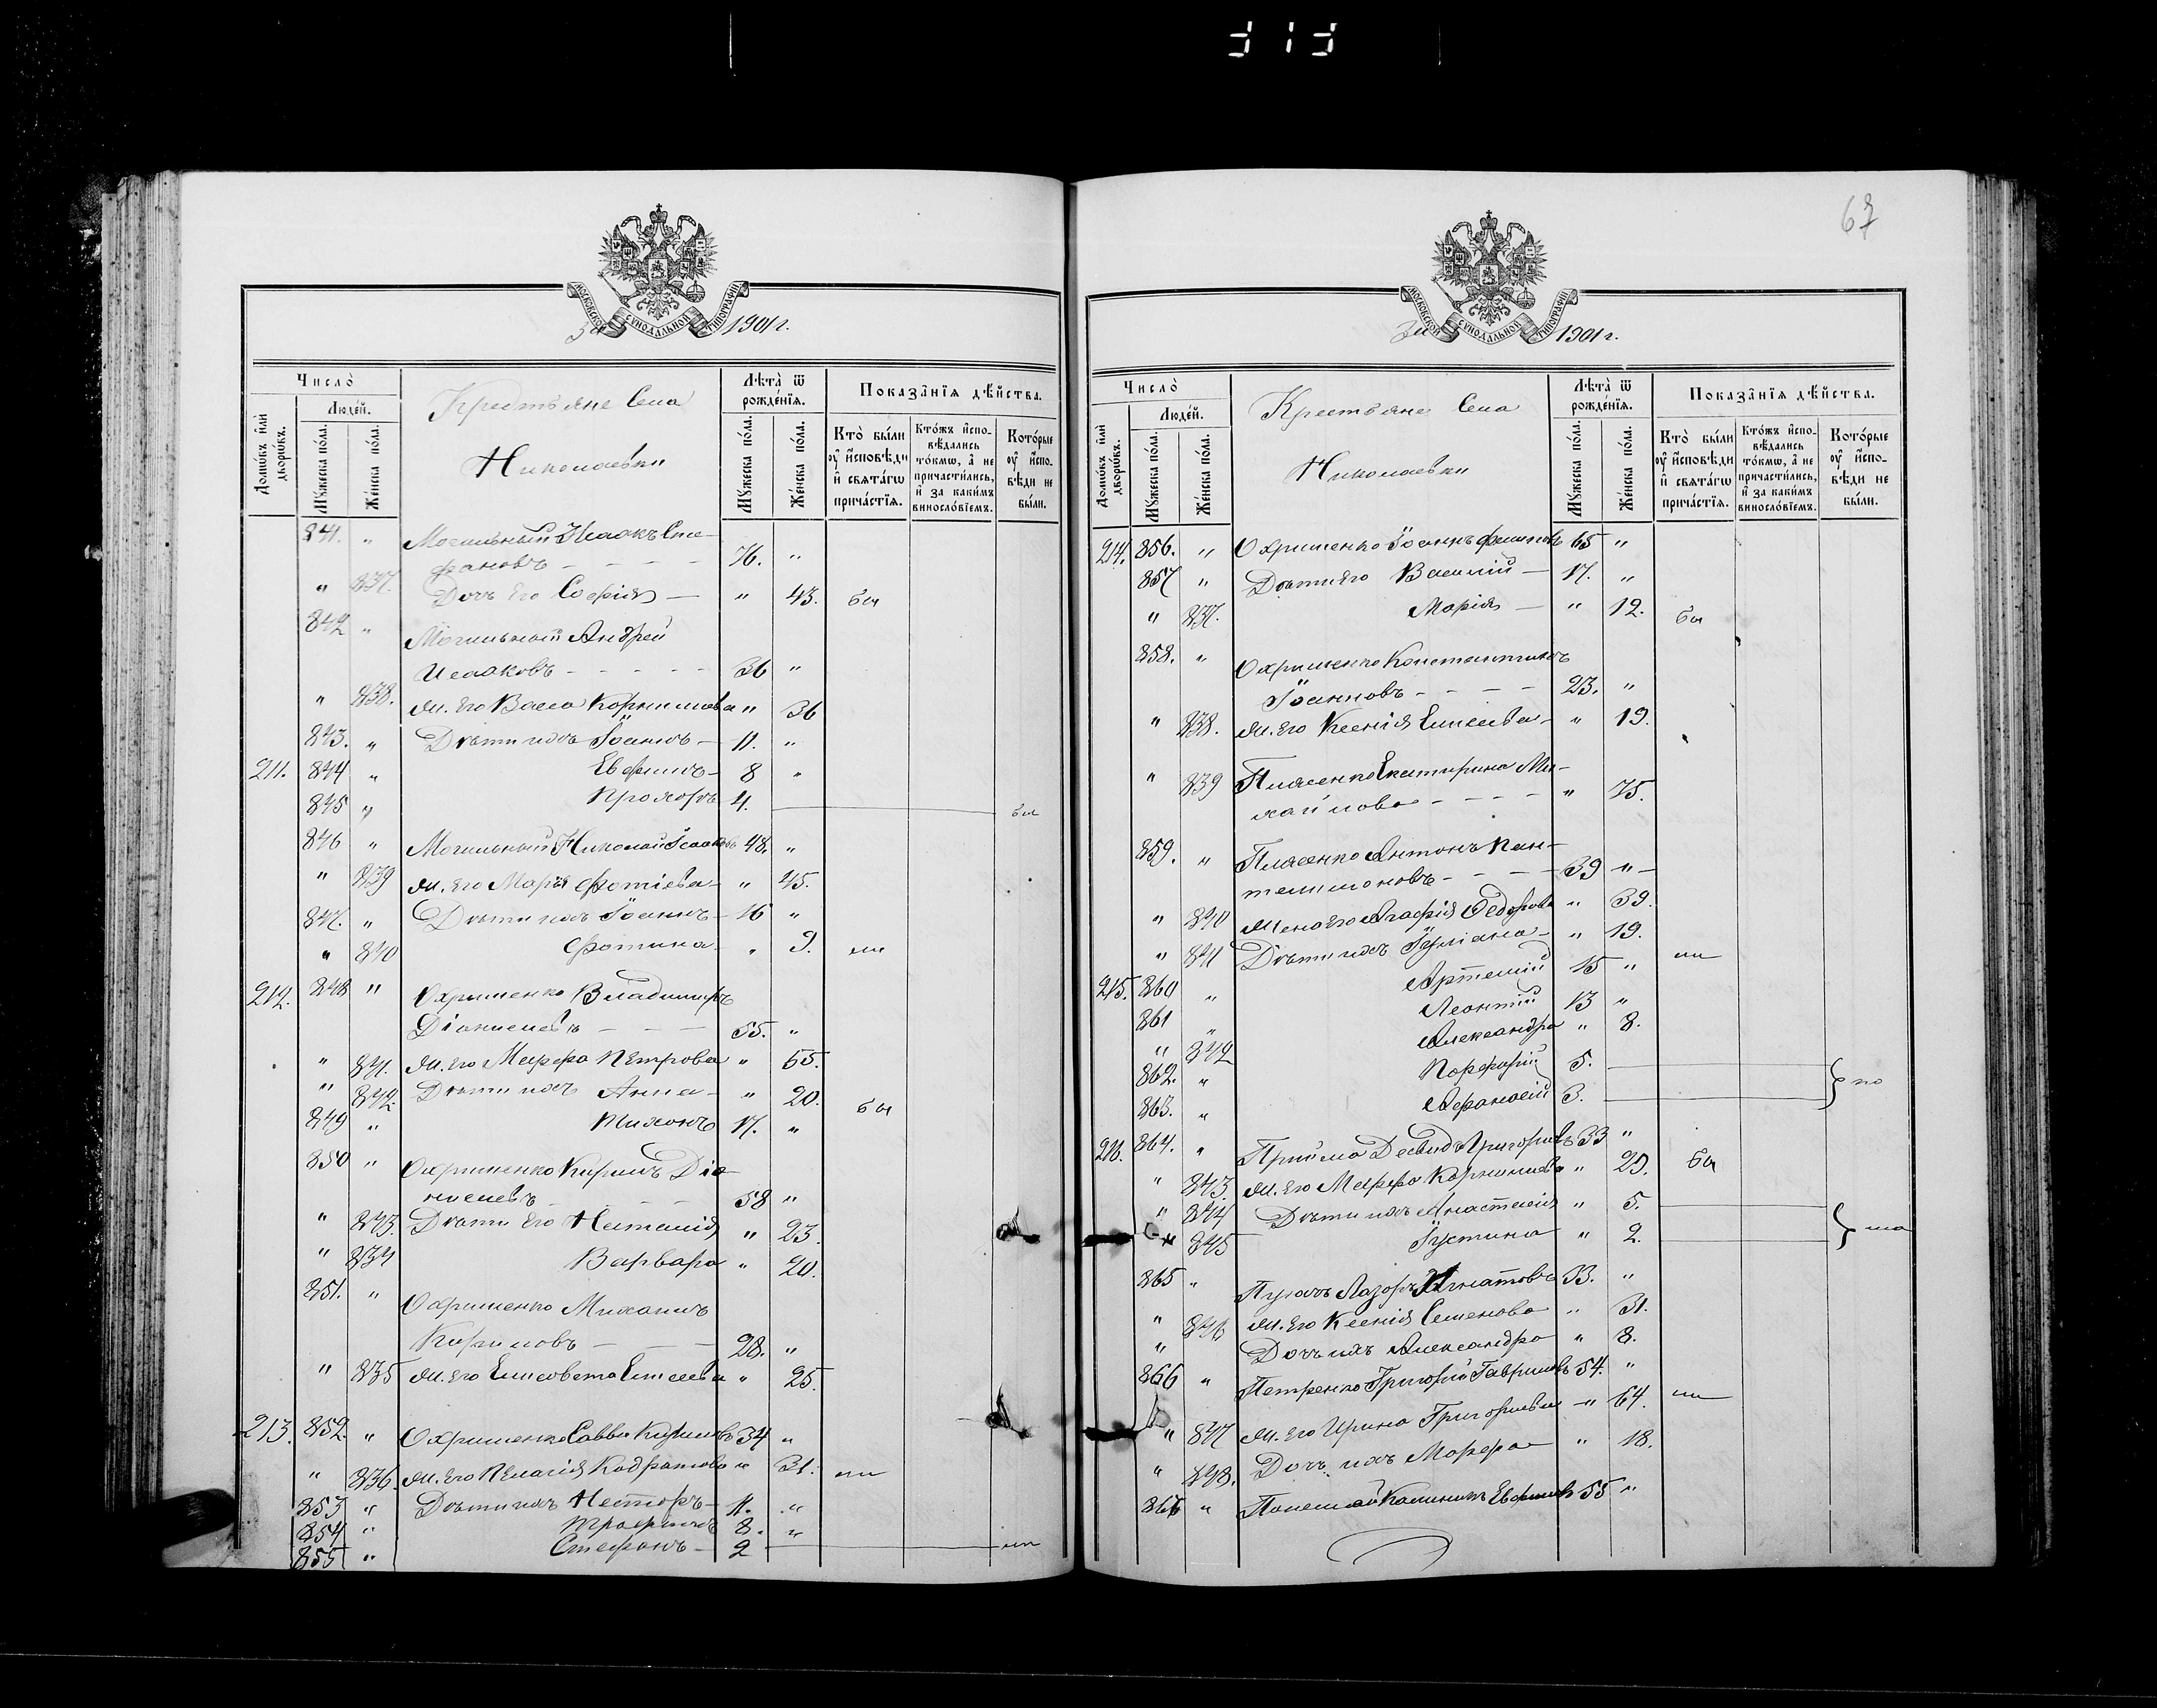 313
67
МОСКОВСКОЙ СѴНОДАЛЬНОЙ ТИПОГРАФІИ
За 1901 г.
Число̀
Домѡ́въ и҆лѝ дворѡ́въ.
Люде́й.
Мꙋ́жеска по́ла.
Же́нска по́ла.
Крестьяне Села
Николаевки
Лѣта̀ ѿ рожде́нїѧ.
Мꙋ́жеска по́ла.
Же́нска по́ла.
Показа̑нїѧ дѣ́йства.
Кто̀ бы́ли
ᲂу҆ и҆́сповѣди
и҆ свѧта́гѡ
прича́стїѧ.
Кто́жъ и҆спо-
вѣ́дались
то́кмѡ, а҆ не
причасти́лись,
и҆ за каки́мъ
виносло́вїемъ.
Кото́рые
ᲂу҆ и҆́спо-
вѣди не
бы́ли.
841. " Могильный Исаакъ Сте-
фановъ - - - - 76. "
" 837. Дочь Его Софія - " 43. бы
842 " Могильный Андрей
Исааковъ - - - - - 36 "
" 838. Ж. Его Васса Корнилиева " 36
843. " Дѣти ихъ Іоаннъ - 11. "
211. 844 " Евфимъ - 8 "
845 " Прохоръ 4. бы
846 " Могильный Николай Ісааковъ 48. "
" 839 Ж. Его Марія Фотіева - " 45.
847. " Дѣти ихъ Іоаннъ - 16 "
" 840 Фотина " 9. ли
212. 848 " Охрименко Владимиръ
Діонисіевъ - - - 55. "
" 841. Ж. Его Марфа Петрова " 55.
" 842. Дѣти ихъ Анна - " 20. бы
849 " Тихонъ 17. "
850 " Охрименко Кирилъ Діо-
нисіевъ - - - 58 "
" 843. Дѣти Его Наталія " 23.
" 834 Варвара " 20.
851. " Охрименко Михаилъ
Кириловъ - - 28. "
" 835 Ж. Его Елисавета Елисеева " 25.
213. 852. " Охрименко Савва Кириловъ 34 "
" 836. Ж. Его Пелагія Кодратова " 31. ли
853 " Дѣти ихъ Несторъ - 11. "
854 " Трофимъ 8. "
855 " Стефанъ - 2 ли
МОСКОВСКОЙ СѴНОДАЛЬНОЙ ТИПОГРАФІИ
За 1901 г.
Число̀
Домѡ́въ и҆лѝ дворѡ́въ.
Люде́й.
Мꙋ́жеска по́ла.
Же́нска по́ла.
Крестьяне Села
Николаевки
Лѣта̀ ѿ рожде́нїѧ.
Мꙋ́жеска по́ла.
Же́нска по́ла.
Показа̑нїѧ дѣ́йства.
Кто̀ бы́ли
ᲂу҆ и҆́сповѣди
и҆ свѧта́гѡ
прича́стїѧ.
Кто́жъ и҆спо-
вѣ́дались
то́кмѡ, а҆ не
причасти́лись,
и҆ за каки́мъ
виносло́вїемъ.
Кото́рые
ᲂу҆ и҆́спо-
вѣди не
бы́ли.
214. 856. " Охрименко Іоаннъ Филиповъ 65 "
857 " Дѣти Его Василій - 17. "
" 837. Марія - " 12. бы
858. " Охрименко Константинъ
Іоанновъ - - - - 23. "
" 838. Ж. Его Ксенія Елисеева - " 19.
" 839 Плясенко Екатерина Ми-
хайлова - - - - " 75.
859. " Плясенко Антонъ Пан-
телимоновъ - - - - 39 "
" 840 Жена Его Агафія Федорова " 39.
" 841 Дѣти ихъ Іуліана - " 19. ли
215. 860 " Артемій 15 "
861 " Леонтій 13 "
" 842 Александра " 8.
862. " Порфирій 5. но
863. " Афанасій 3.
216. 864. " Прийма Давидъ Григорьевъ 33 "
" 843. Ж. Его Марфа Корнилиева " 29. бы
" 844 Дѣти ихъ Анастасія " 5. ша
" 845 Іустина " 2.
865 " Пугачъ Лазоръ Игнатовъ 33. "
" 846 Ж. Его Ксенія Семенова " 31.
" Дочь ихъ Александра " 8.
866 " Петренко Григорій Гавриловъ 54. "
" 847 Ж. Его Ирина Григорьева - " 64. ли
" 848. Дочь ихъ Марфа " 18.
866 " Калиникъ Евфимовъ 55 "